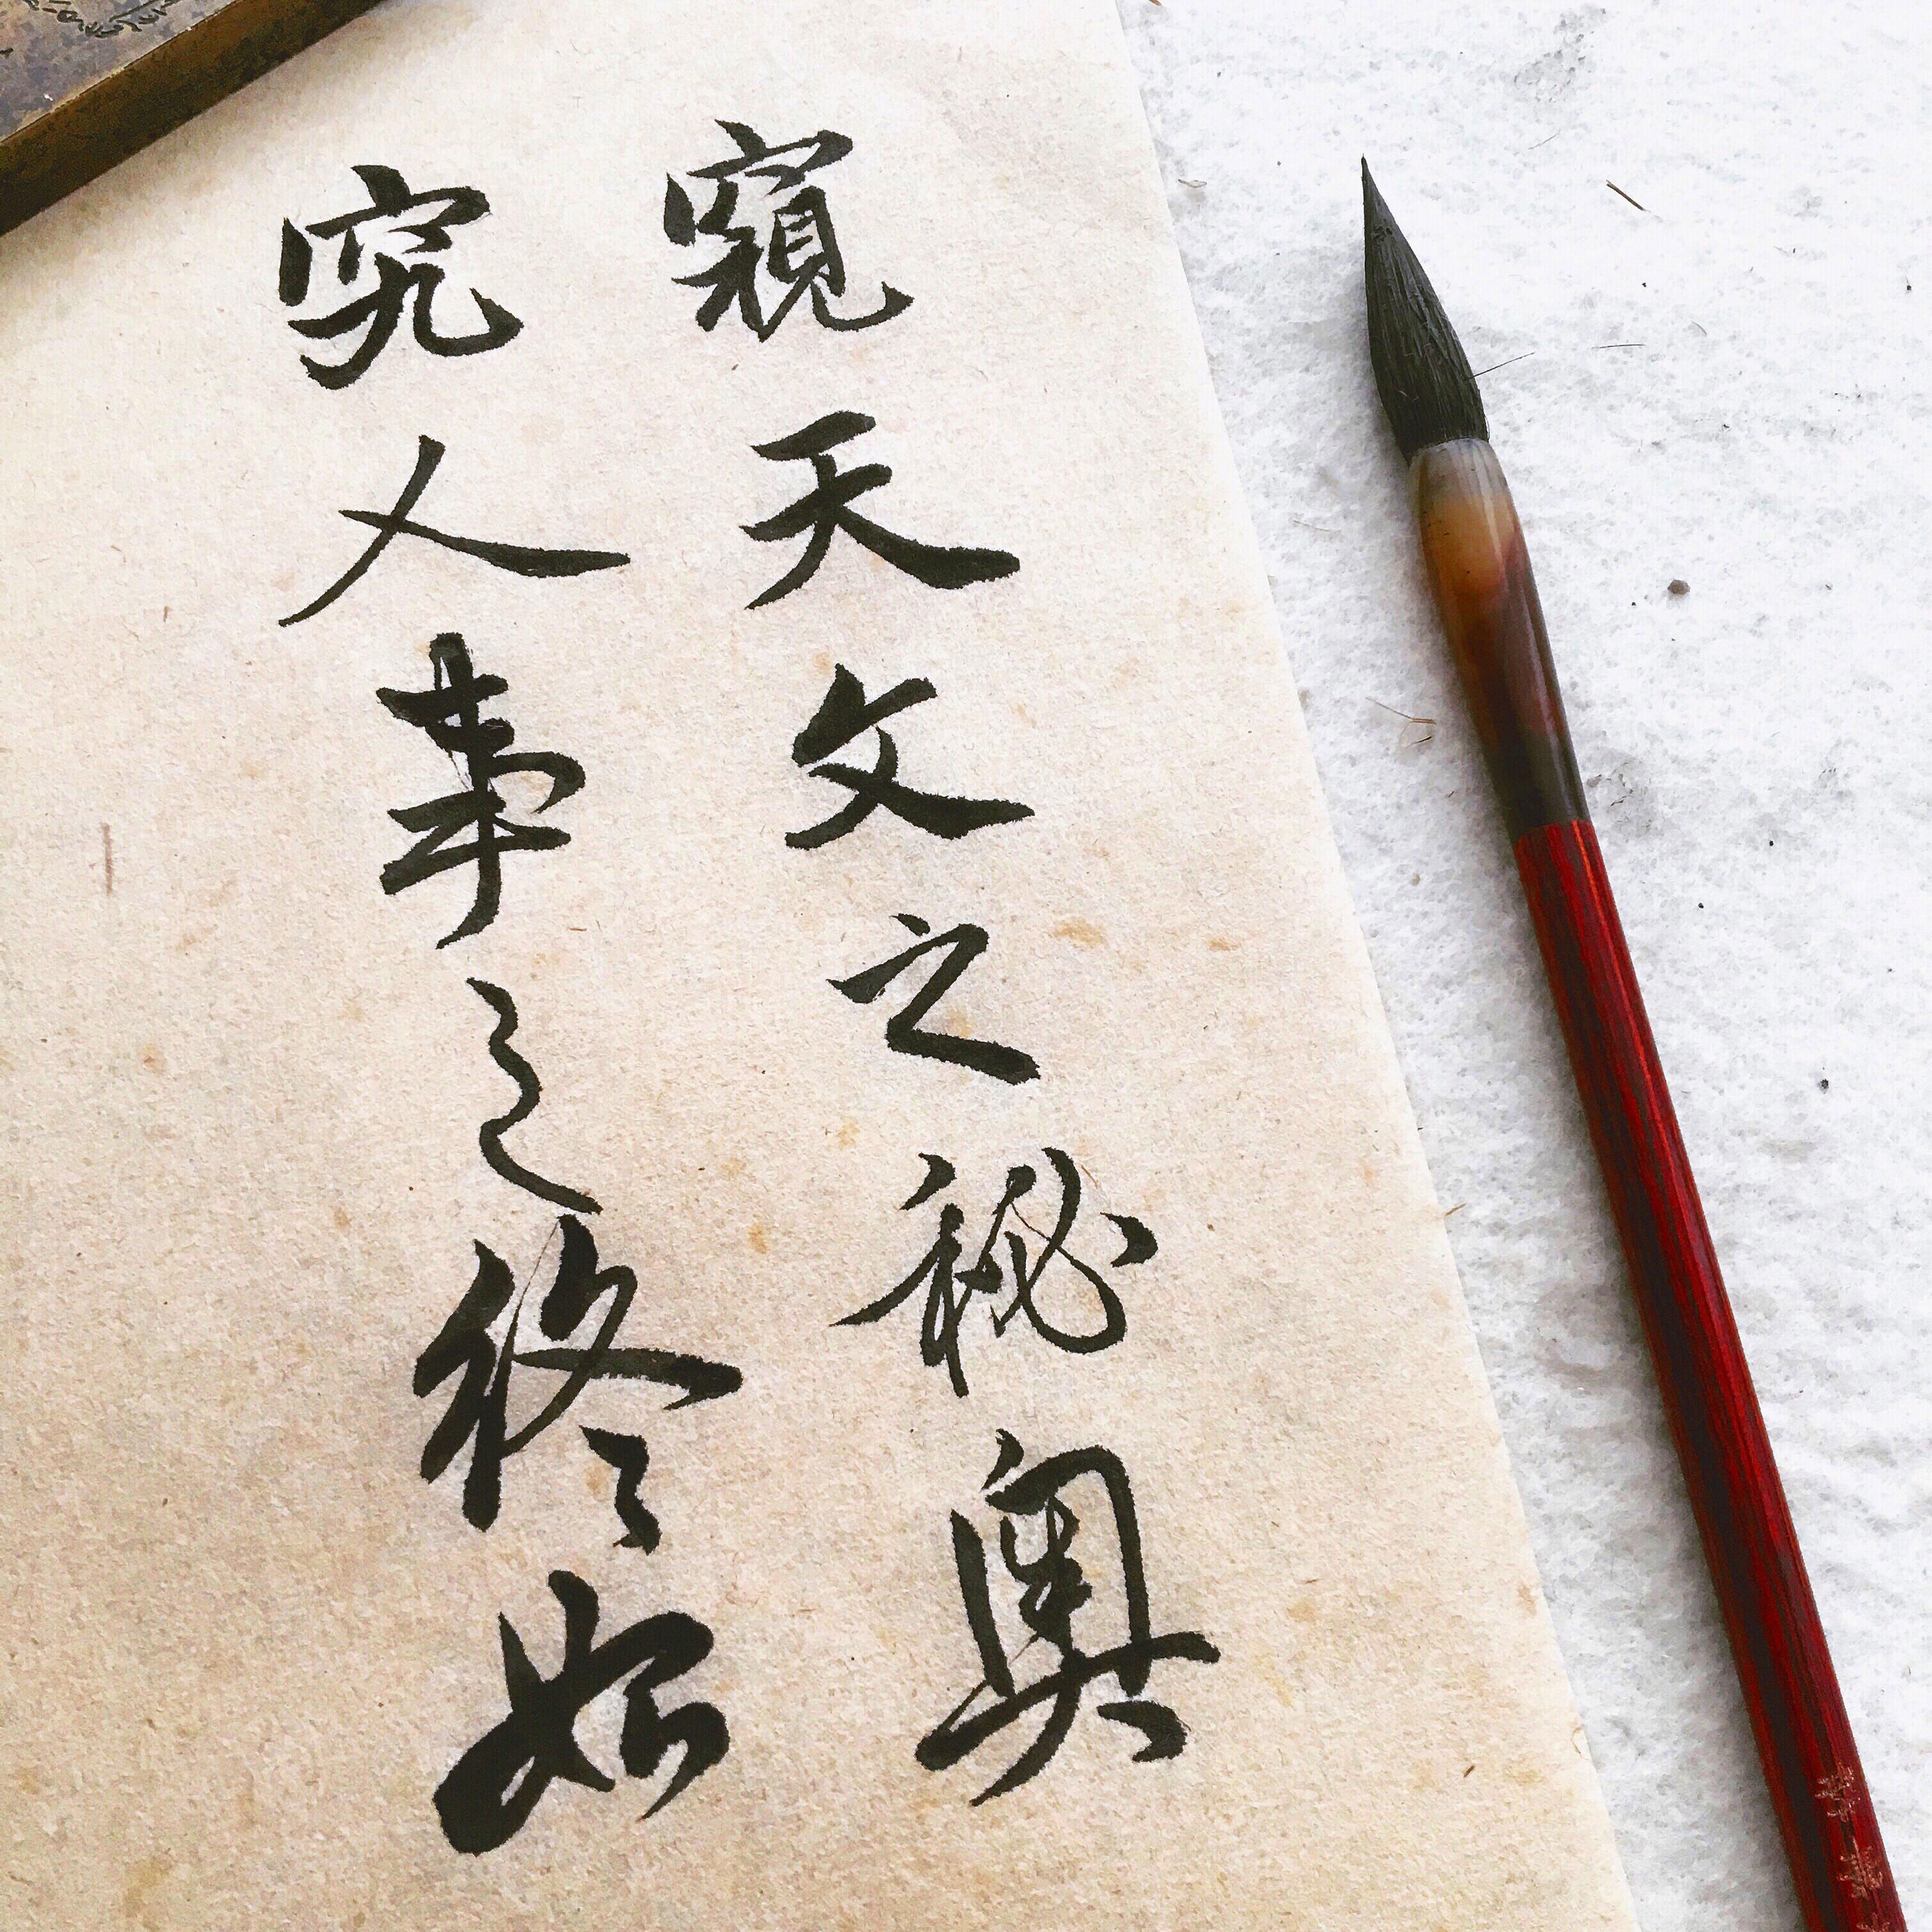 窺天文之秘奧
究人事之終始